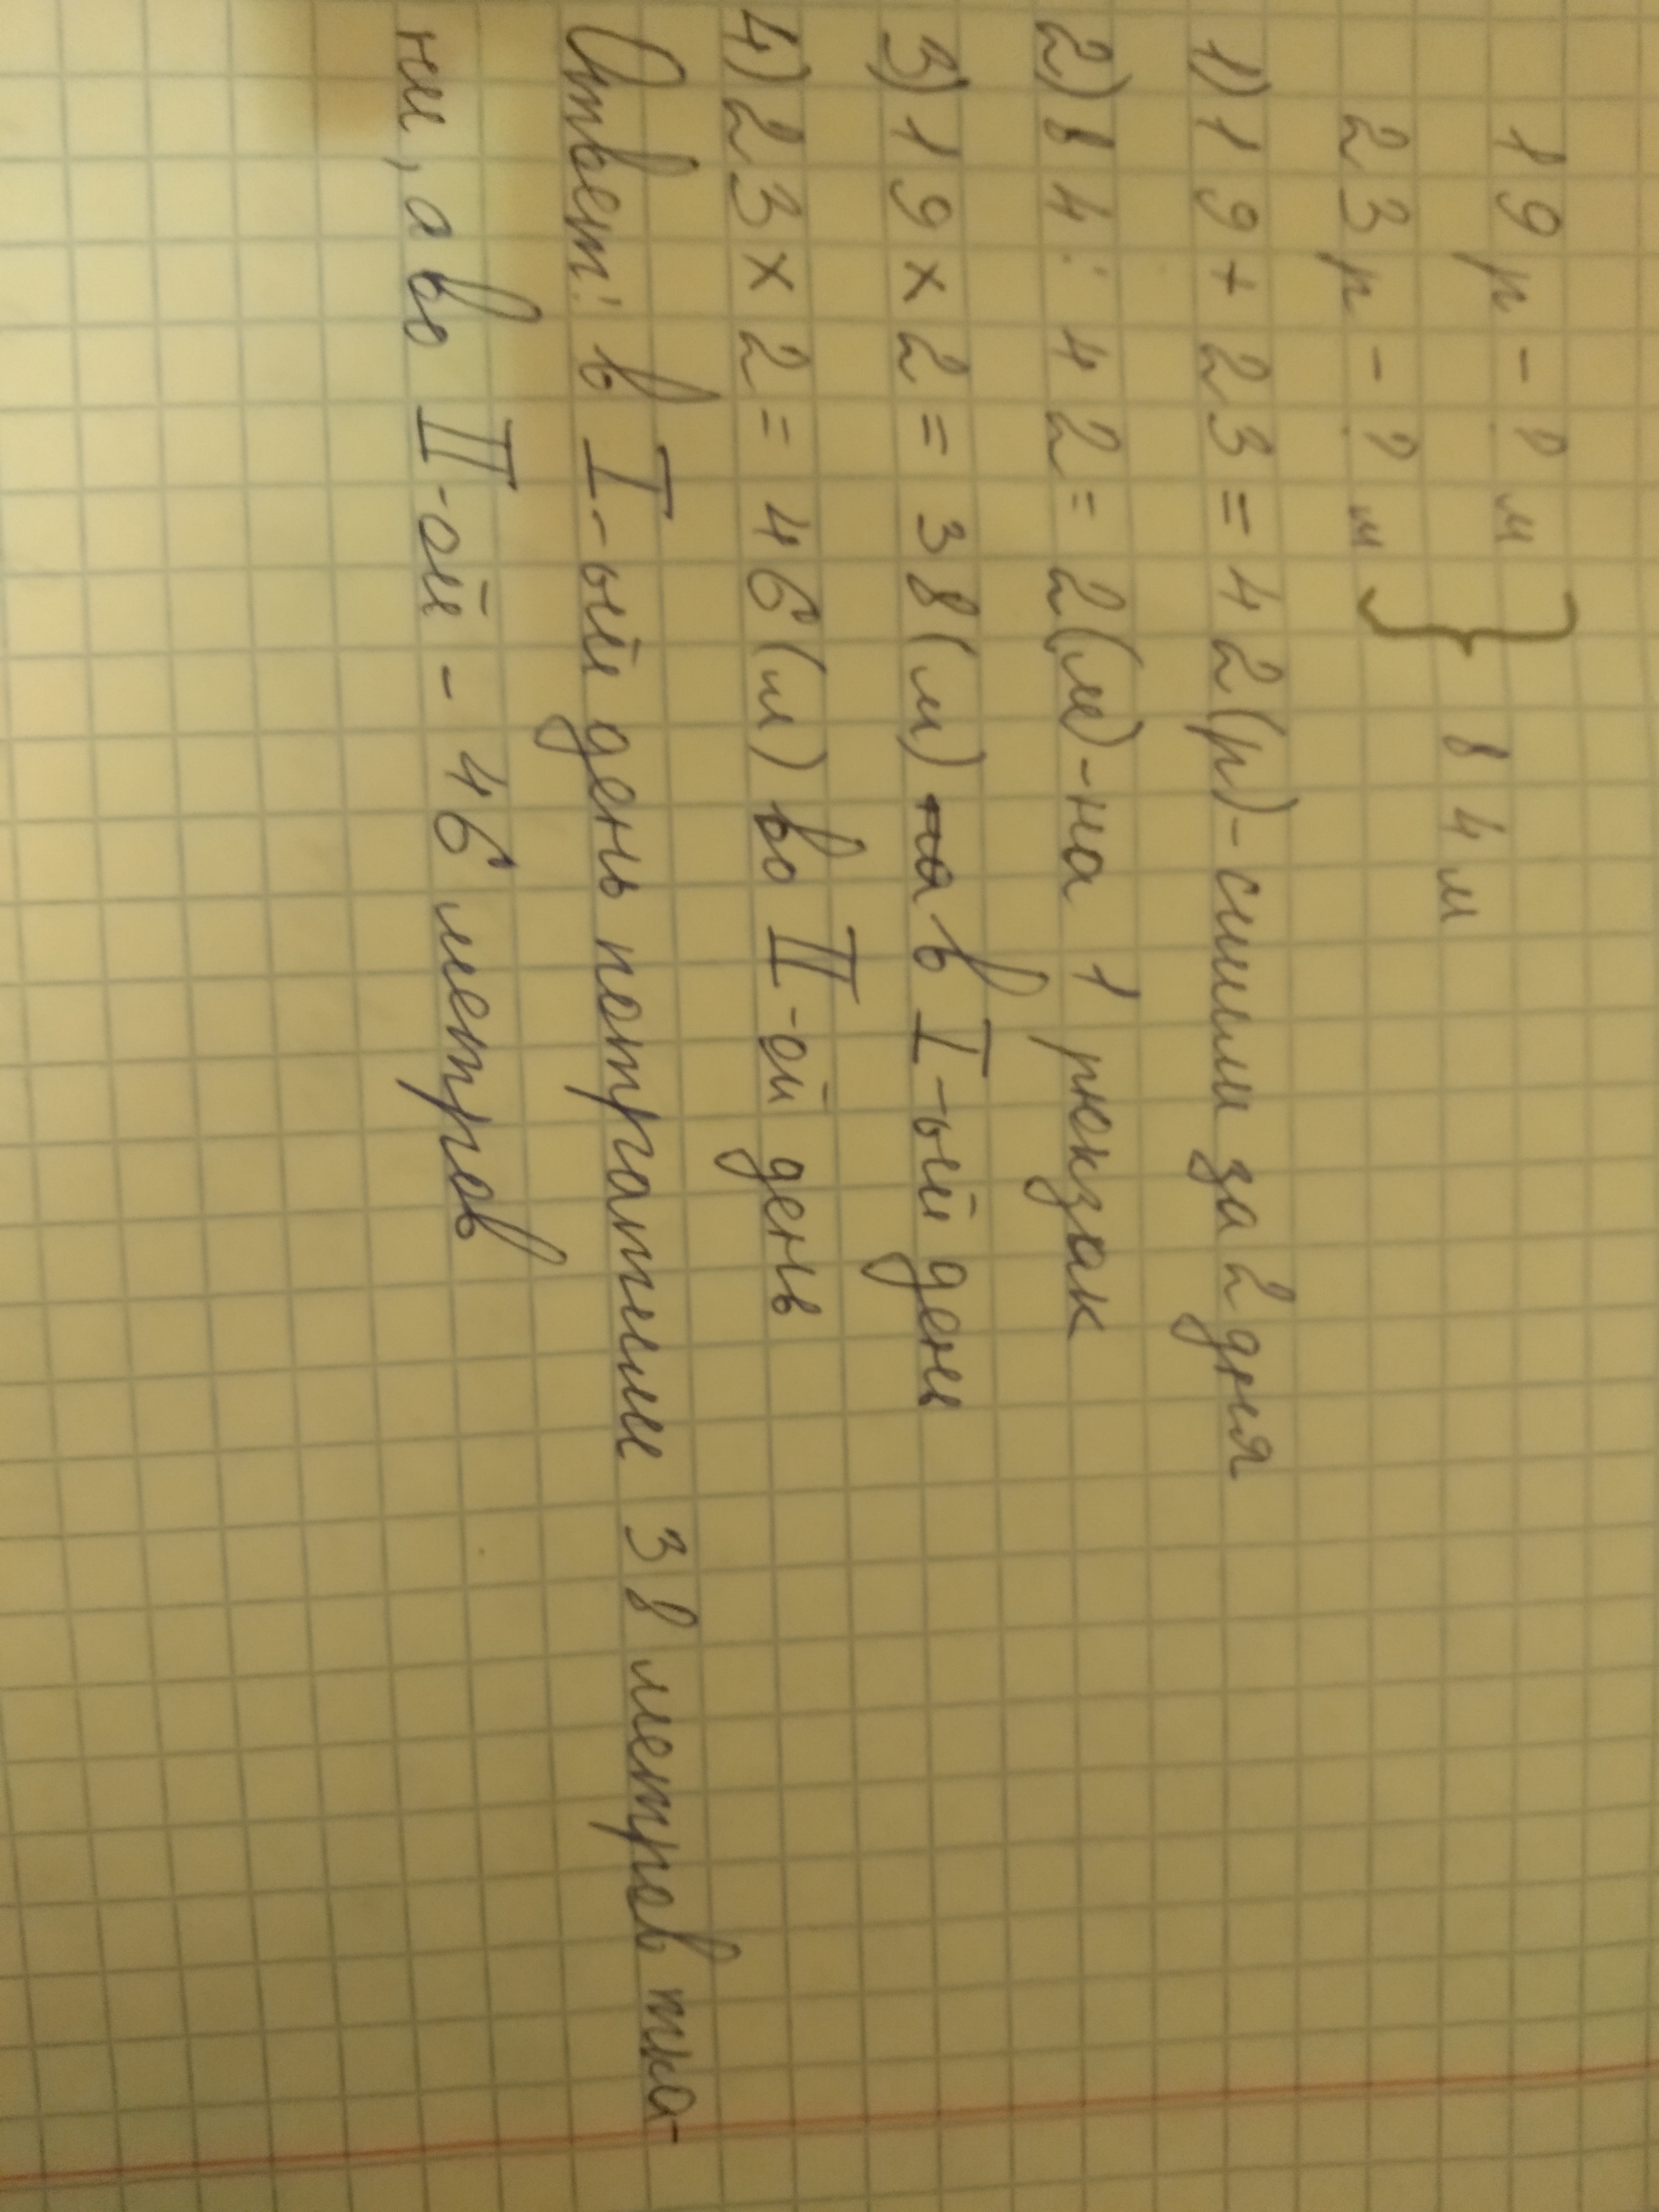 19 р - ? м } 84 м
23 р - ? м
1) 19 + 23 = 42 (р) - сшили за 2 дня
2) 84 : 42 = 2 (м) - на 1 рюкзак
3) 19 × 2 = 38 (м) на в I-ый день
4) 23 × 2 = 46 (м) во II-ой день
Ответ: в I-ый день потратили 38 метров тка-
ни, а во II-ой - 46 метров